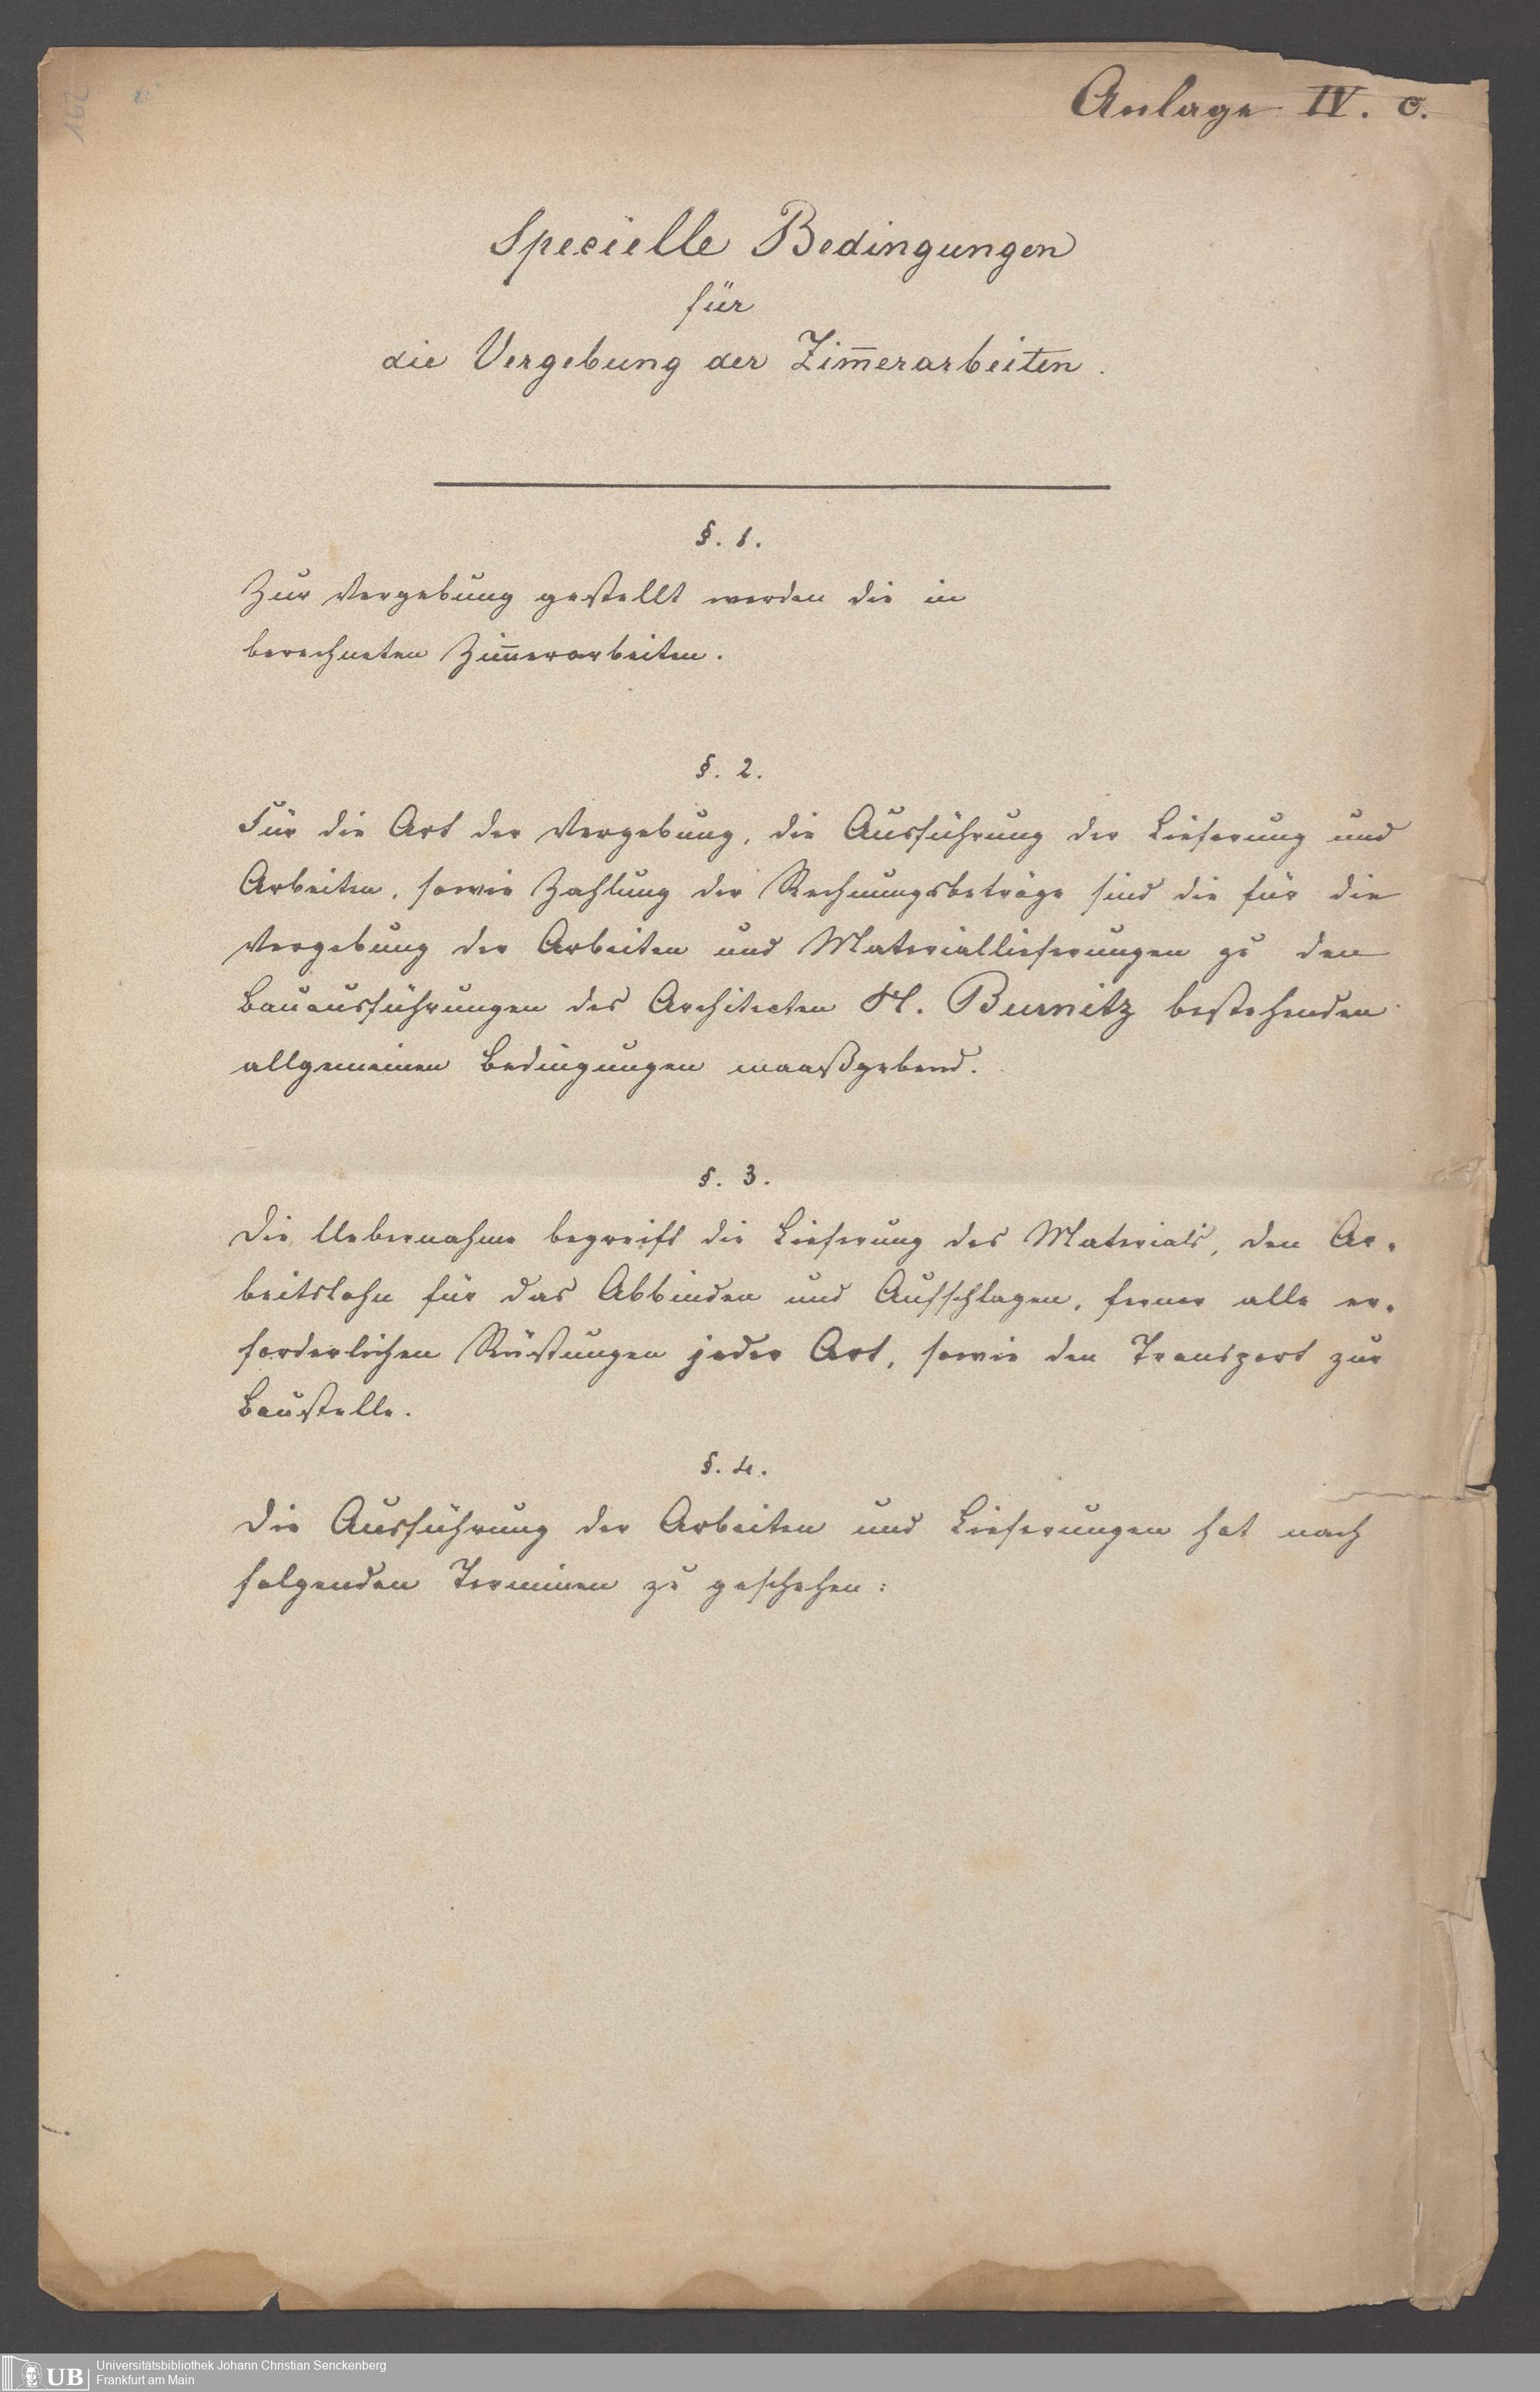 162
Anlage IV. c.
Specielle Bedingungen
für
die Vergebung der Zim̅erarbeiten.
§. 1.
Zur Vergebung gestellt werden die in
berechneten Zim̅erarbeiten.
§. 2.
Für die Art der Vergebung, die Ausführung der Lieferung und
Arbeiten, sowie Zahlung der Rechnungsbeträge sind die für die
Vergebung der Arbeiten und Materiallieferungen zu den
Bauausführungen des Architecten H. Burnitz bestehenden
allgemeinen Bedingungen maaßgebend.
§. 3.
Die Uebernahme begreift die Lieferung des Materials, den Ar-
beitslohn für das Abbinden und Aufschlagen, ferner alle er-
forderlichen Rüstungen jeder Art, sowie den Transport zur
Baustelle.
§. 4.
Die Ausführung der Arbeiten und Lieferungen hat nach
folgenden Terminen zu geschehen:
UB
Universitätsbibliothek Johann Christian Senckenberg
Frankfurt am Main